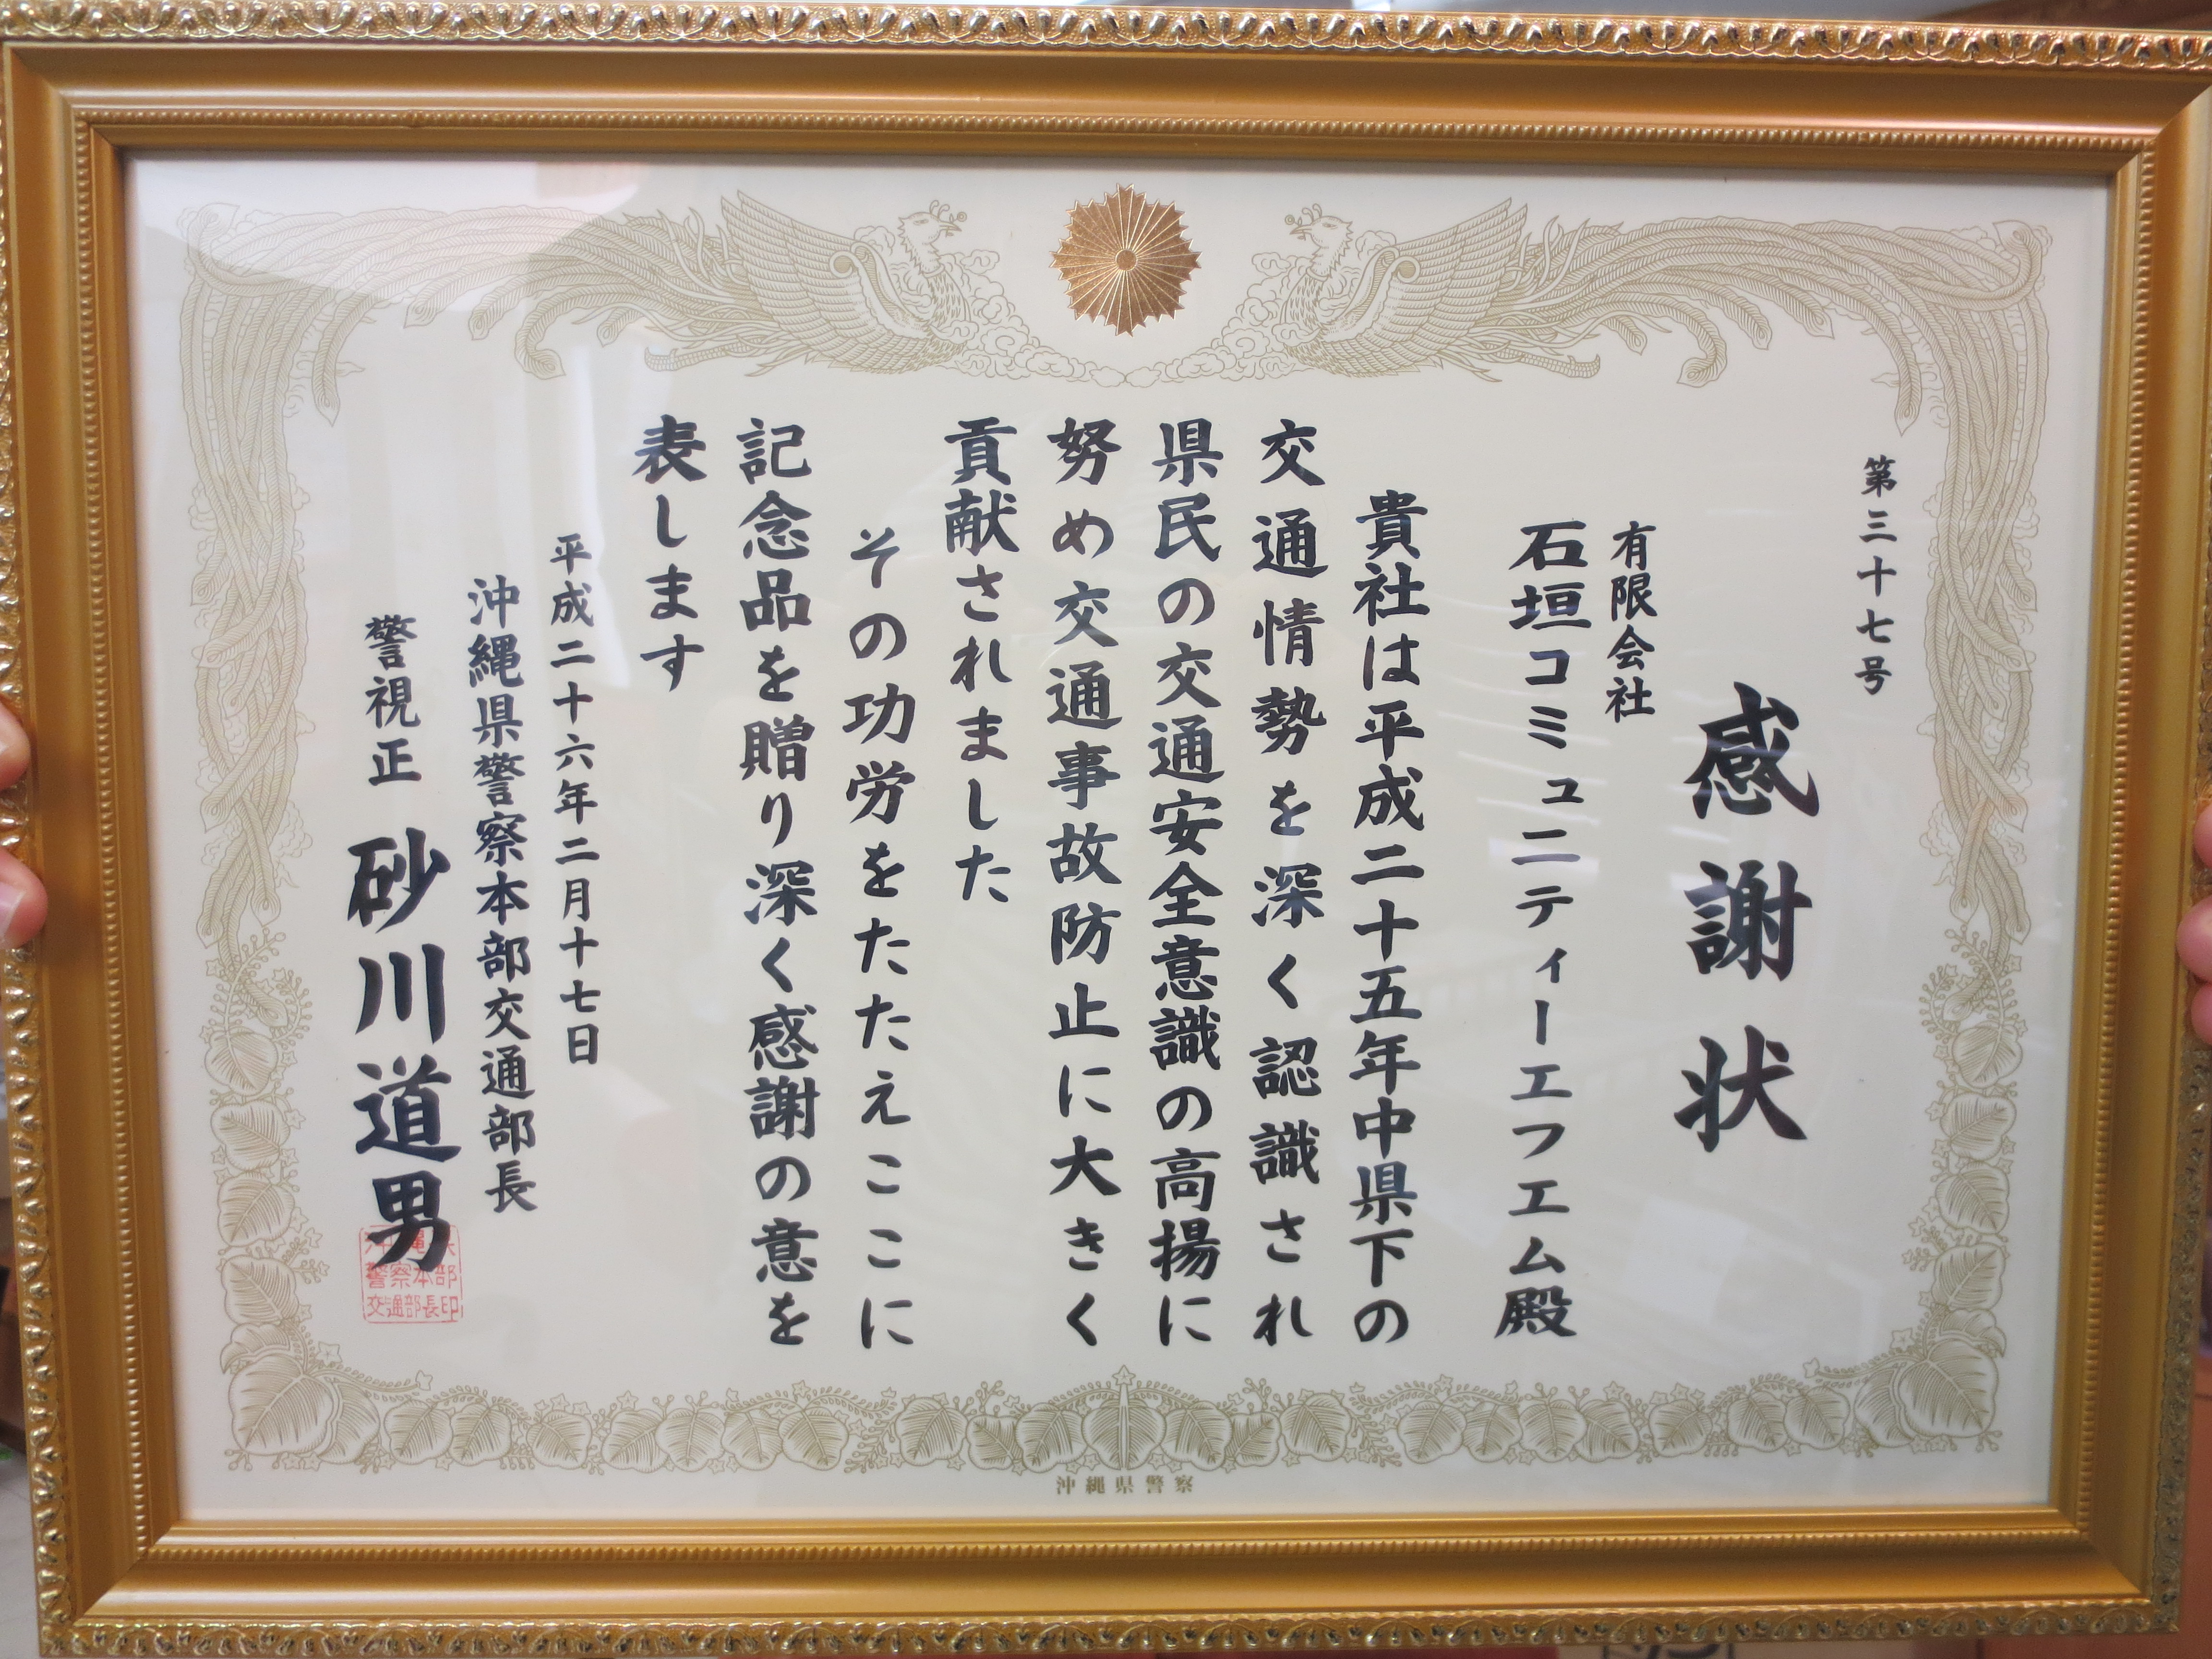 第三十七号
感謝状
有限会社
石垣コミュニティーエフエム殿
貴社は平成二十五年中県下の
交通情勢を深く認識され
県民の交通安全意識の高揚に
努め交通事故防止に大きく
貢献されました
その功労をたたえここに
記念品を贈り深く感謝の意を
表します
平成二十六年二月十七日
沖縄県警察本部交通部長
警視正 砂川道男
沖縄県
警察本部
交通部長印
沖縄県警察